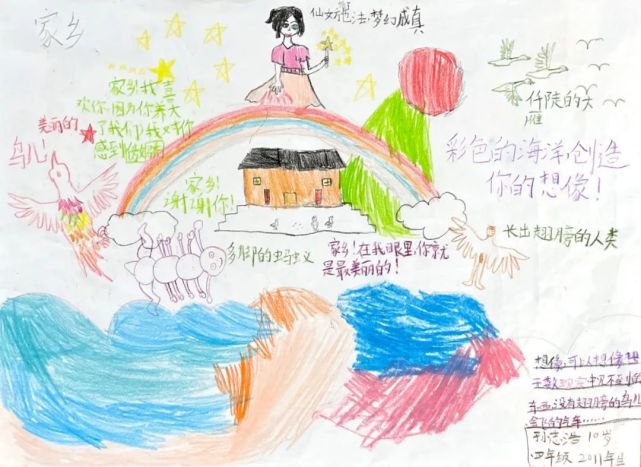 家乡
仙女施法梦幻成真
家乡我喜
欢你因为你养大
了我们我对你
感到
家乡!
谢谢你!
美丽的
鸟儿!
的大
雁
彩色的海洋,创造
你的想像!
长出翅膀的人类
多脚的蚂蚁
家乡!在我眼里,你就
是最美丽的!
想像,可以想像
无数现实中见不到的
东西,没有翅膀的鸟儿
会飞的汽车……
孙志浩 10岁
四年级 2011年生